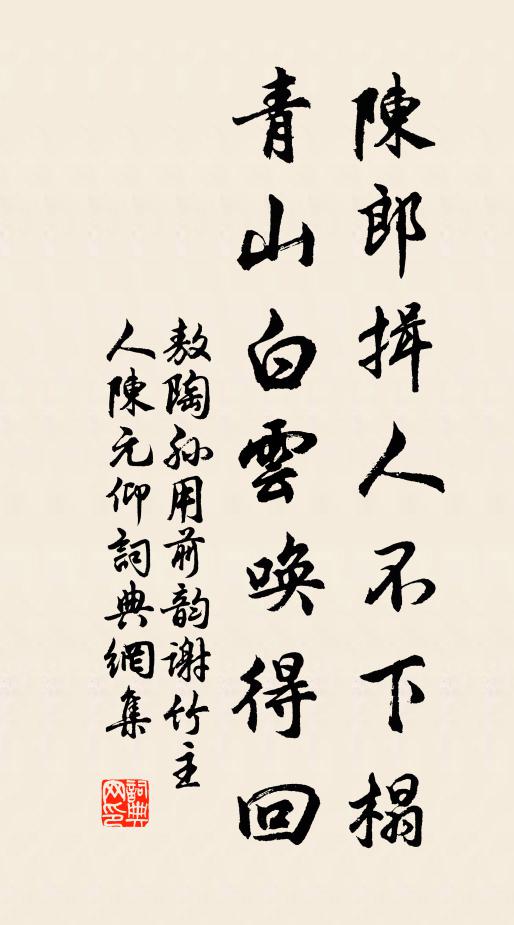 陳郎揖人不下榻
青山白雲喚得回
敖陶孫用前韵謝竹主
人陳元仰詞典網集
詞典
网印